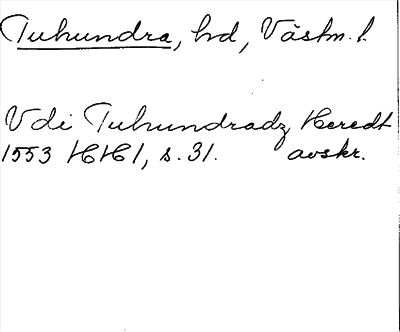 Tuhundra, hd, Västm. l.
Vdi Tuhundradz Heredt
1553 HH1, s. 31. avskr.